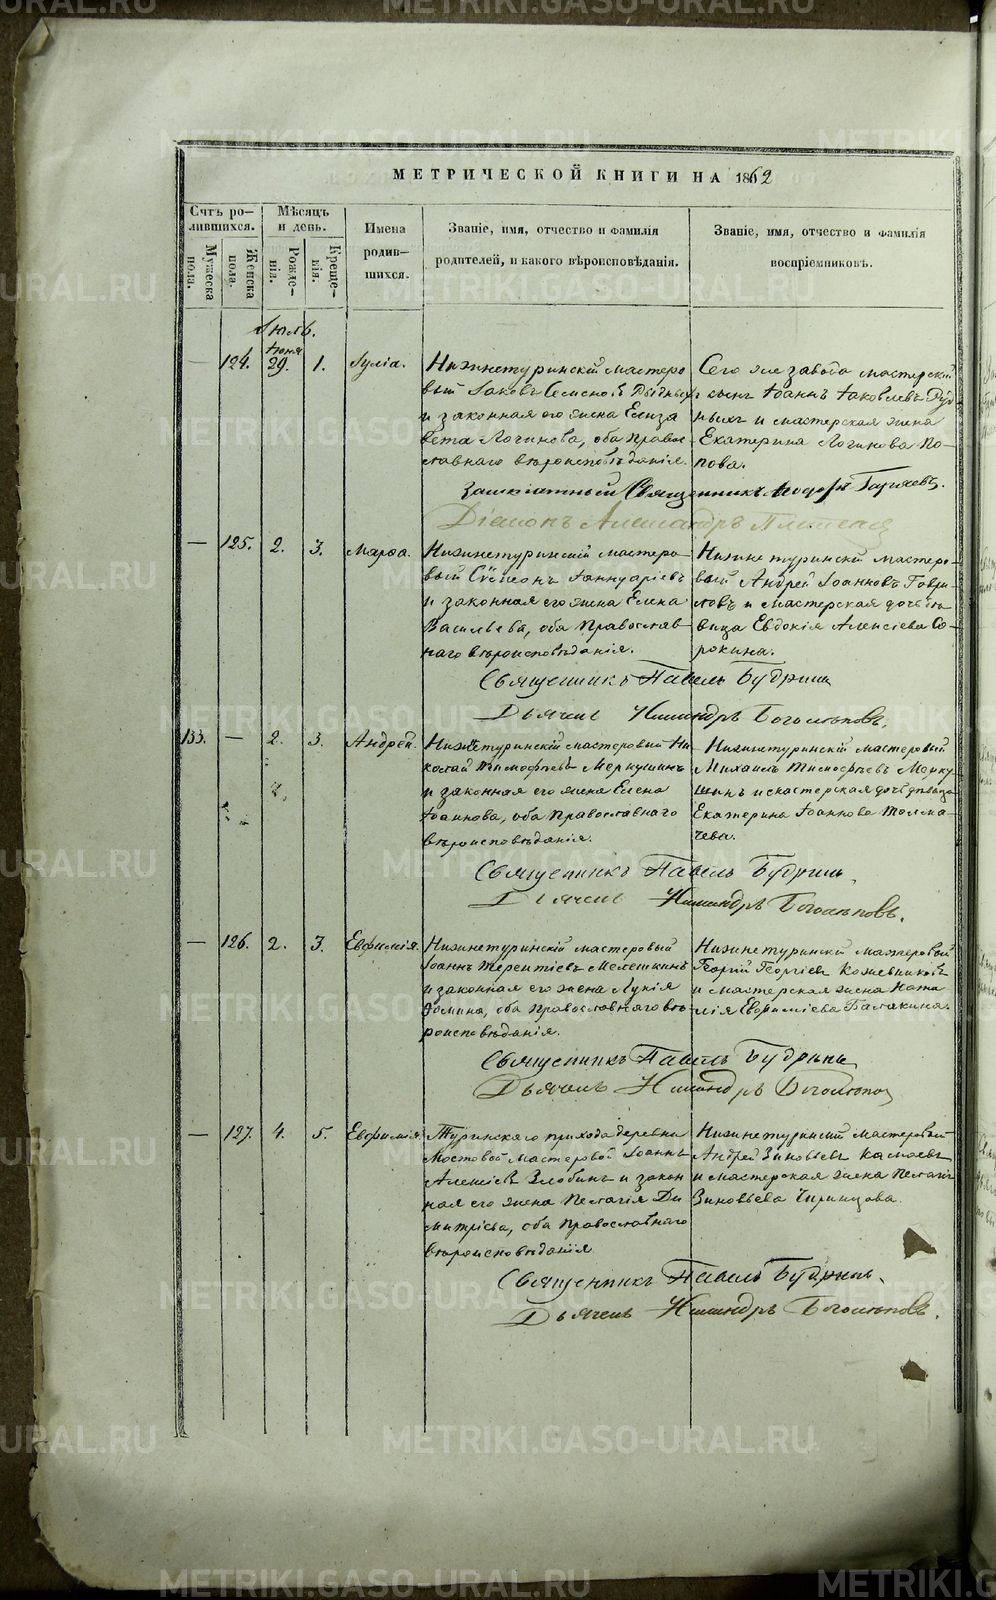 МЕТРИЧЕСКОЙ КНИГИ НА 1862
Счтъ ро-
лившихся.
Мужеска пола.
Женска пола.
Мѣсяцъ
и день.
Рожде-
нія.
Креще-
нія.
Имена
родив-
шихся.
Званіе, имя, отчество и фамилія
родителей, и какого вѣроисповѣданія.
Званіе, имя, отчество и фамилія
воспріемниковъ.
Іюль.
— 124. Іюня 29. 1. Іулія.
Нижнетуринскій мастеро
вый Іаковъ Семеновъ
и законная его жена Елиза
вета Логинова, оба право
славнаго вѣроисповѣданія.
Сего же завода мастерскій
сынъ Іоаннъ Іаковлевъ Руд
ныхъ и мастерская жена
Екатерина Логинова По-
пова.
Священникъ
Діаконъ Александръ
— 125. 2. 3. Марѳа.
Нижнетуринскій мастеро-
вый Сѵмеонъ Іаннуаріевъ
и законная его жена Елена
Васильева, оба Православ
наго вѣроисповѣданія.
Нижнетуринскій мастеро-
вый Андрей Іоанновъ Гаври-
ловъ и мастерская дочь дѣ
вица Евдокія Алексіева Со-
рокина.
Священникъ Павелъ Будринъ
Дьячекъ Никандръ Боголѣповъ.
133. — 2. 3. Андрей.
Нижнетуринскій мастеровый Ни
колай Тимофѣевъ Меркушинъ
и законная его жена Елена
Іоаннова, оба Православнаго
вѣроисповѣданія.
Нижнетуринскій мастеровый
Михаилъ Тимофѣевъ Мерку
шинъ и мастерская дочь дѣвица
Екатерина Іоаннова Толма-
чева.
Священникъ Павелъ Будринъ
Дьячекъ Никандръ Боголѣповъ.
— 126. 2. 3. Евфимія.
Нижнетуринскій мастеровый
Іоаннъ Терентіевъ Мелешкинъ
и законная его жена Лукія
Фомина, оба Православнаго вѣ-
роисповѣданія.
Нижнетуринскій мастеровый
Георгій Георгіевъ Кожевниковъ
и мастерская жена Ната
лія Евфиміева Балакина.
Священникъ Павелъ Будринъ
Дьячекъ Никандръ Боголѣповъ
— 127. 4. 5. Евфимія.
Туринскаго прихода деревни
Мостовой мастеровой Іоаннъ
Алексіевъ Злобинъ и закон
ная его жена Пелагія Ди
митріева, оба Православнаго
вѣроисповѣданія
Нижнетуринскій мастеровый
Андрей Зиновьевъ
и мастерская жена Пелагія
Зиновьева
Священникъ Павелъ Будринъ.
Дьячекъ Никандръ Боголѣповъ.